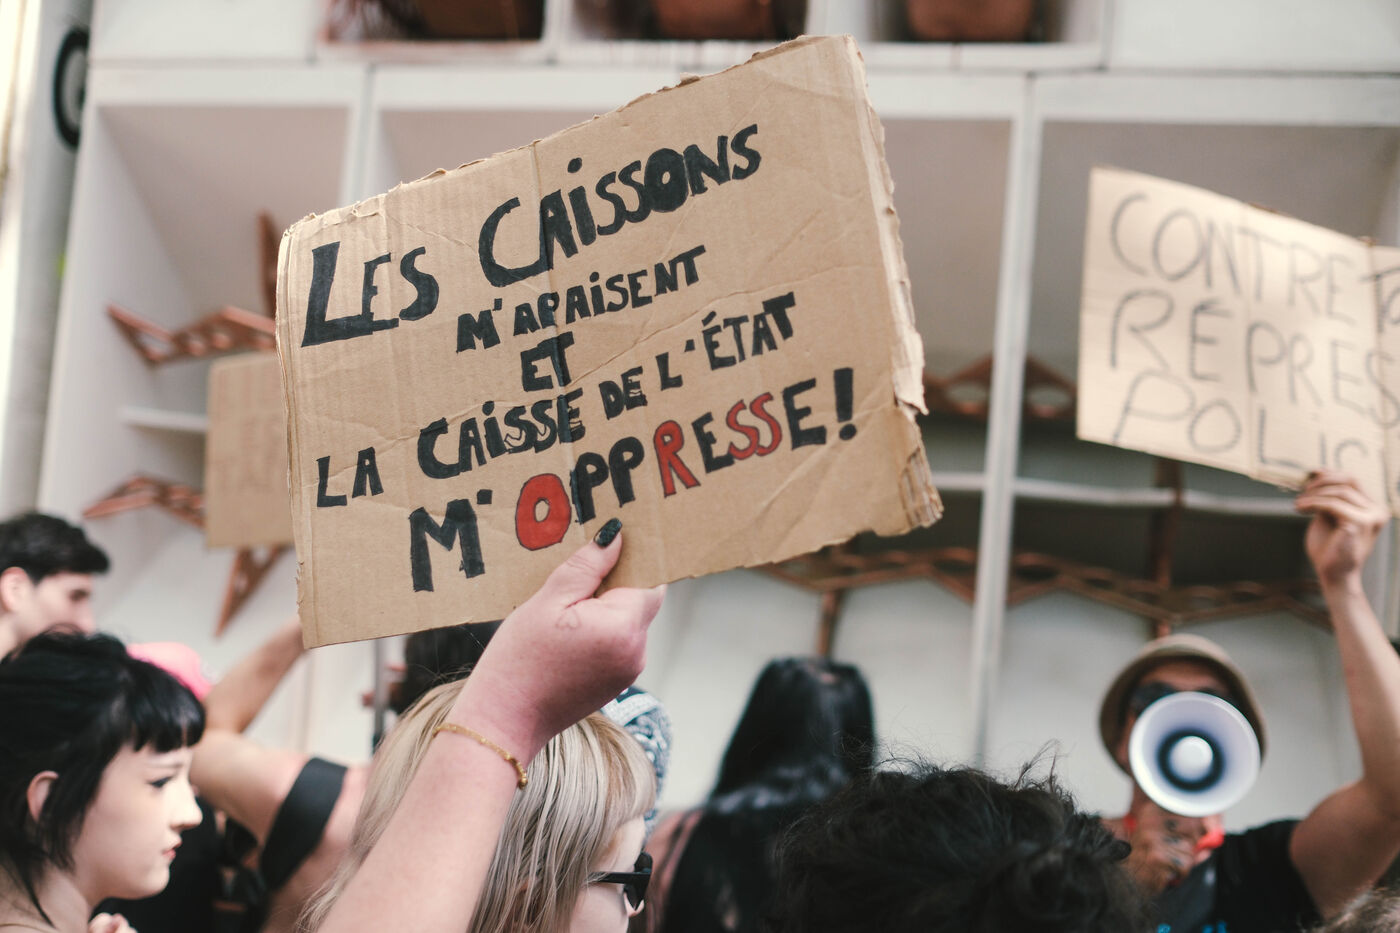 LES CAISSONS
M'APAISENT
ET
LA CAISSE DE L'ÉTAT
M'OPPRESSE!
CONTRE
RÉPRES
POLIC